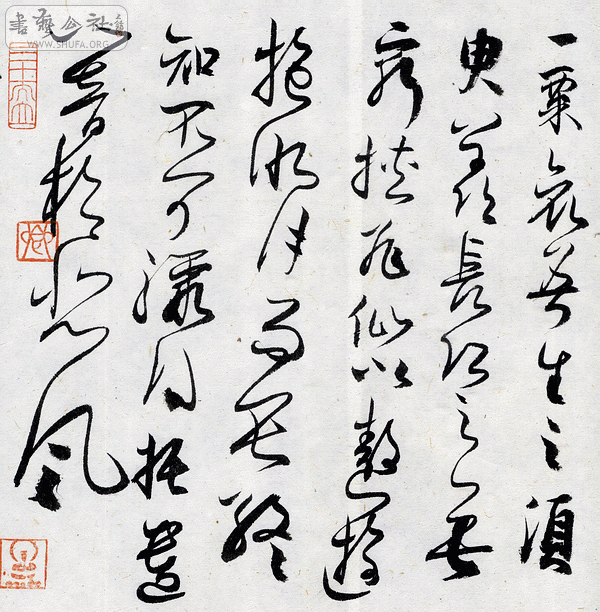 一粟哀吾生之須
臾羨長江之無
窮挾飛仙以遨遊
抱明月而長終
知不可驟得托遺
響於悲風
WWW.SHUFA.ORG